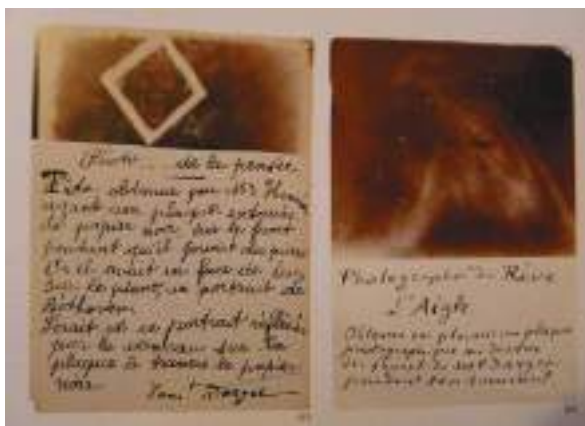 Photo de la pensée
Tête obtenue par Mr H
ayant une plaque entourée
de papier noir sur le front
pendant qu'il jouait du piano
Il avait en face de lui
sur le piano, un portrait de
Beethoven
Serait-ce ce portrait réfléchi
par le cerveau sur la
plaque à travers le papier
noir.
Darget
Photographie du Rêve
L'Aigle
Obtenue en plaçant une plaque
photographique au dessus
du front de Mme Darget
pendant son sommeil